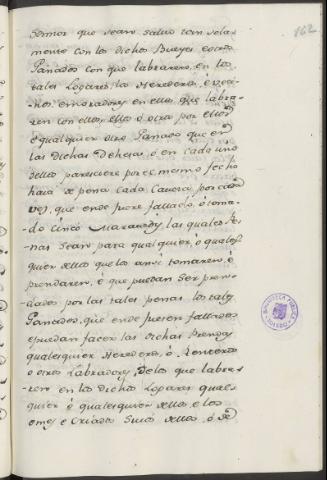 162
señor que sean salvo tan sola
mente con los dichos Bueyes e otros
Ganados con que labraren, en los
tales Logares, los Herederos, é veci
nos, é moradores en ellos, que labra
ren con ellos, ellos ó otra por ellos
é qualquier otro Ganado que en
las dichas Dehesas, ó en cada una
dellas pareciere por el mismo fecho
haia de pena cada Caveza por cada
vez, que ende fuere fallado, ó toma
do cinco Maravedis, las quales Pe
nas sean para qualquier, ó quales
quier dellos que los ansi tomaren, ó
prendaren, é que puedan ser pren
dados por las tales penas, los tales
Ganados, que ende fueren fallados
é puedan facer las dichas Prendas
qualesquier Herederos, ó Renteros
ó otros Labradores, de los que labra
ren en los dichos Logares quales
quier ó qualesquier dellos, é los
omes é Criados suios dellos, ó de
BIBLIOTECA PUBLICA
TOLEDO